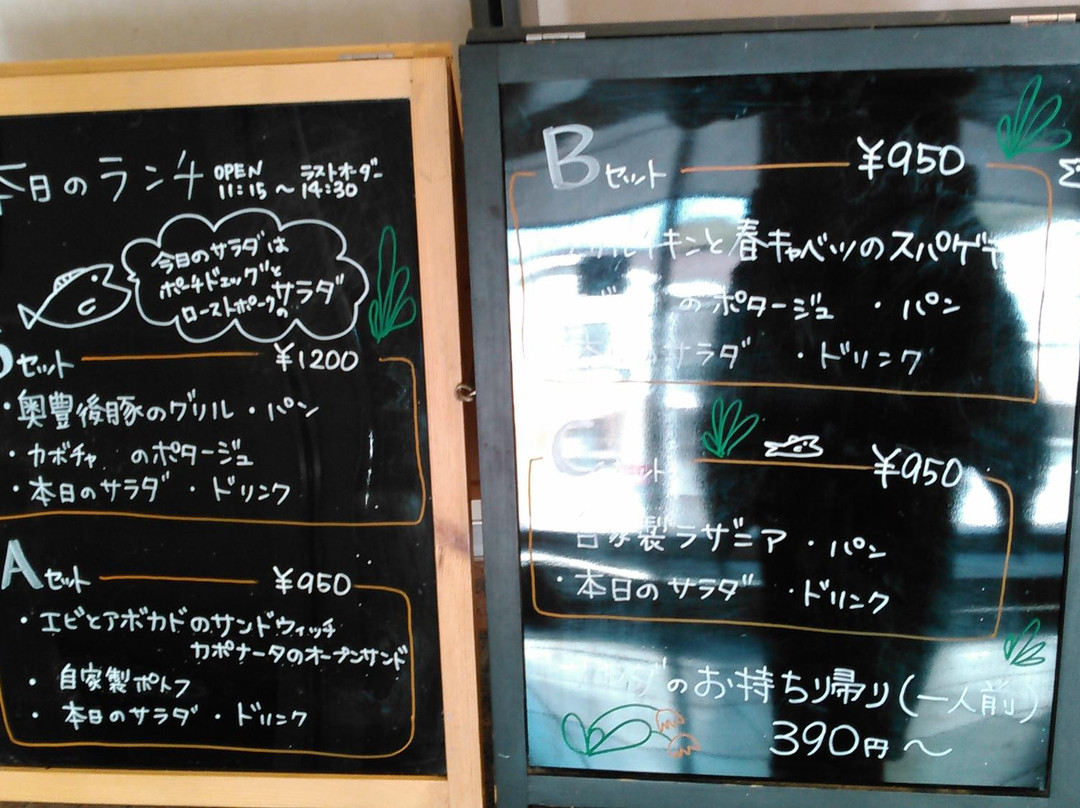 本日のランチ OPEN 11:15 〜 ラストオーダー 14:30
今日のサラダは
ポーチドエッグと
ローストポークのサラダ
セット ¥1200
・奥豊後豚のグリル・パン
・カボチャ のポタージュ
・本日のサラダ ・ドリンク
Aセット ¥950
・エビとアボカドのサンドウィッチ
カポナータのオープンサンド
・自家製ポトフ
・本日のサラダ・ドリンク
Bセット ¥950
チキンと春キャベツのスパゲ
のポタージュ ・パン
本日のサラダ ・ドリンク
Cセット ¥950
自家製ラザニア ・パン
・本日のサラダ ・ドリンク
のお持ち帰り(一人前)
390円〜